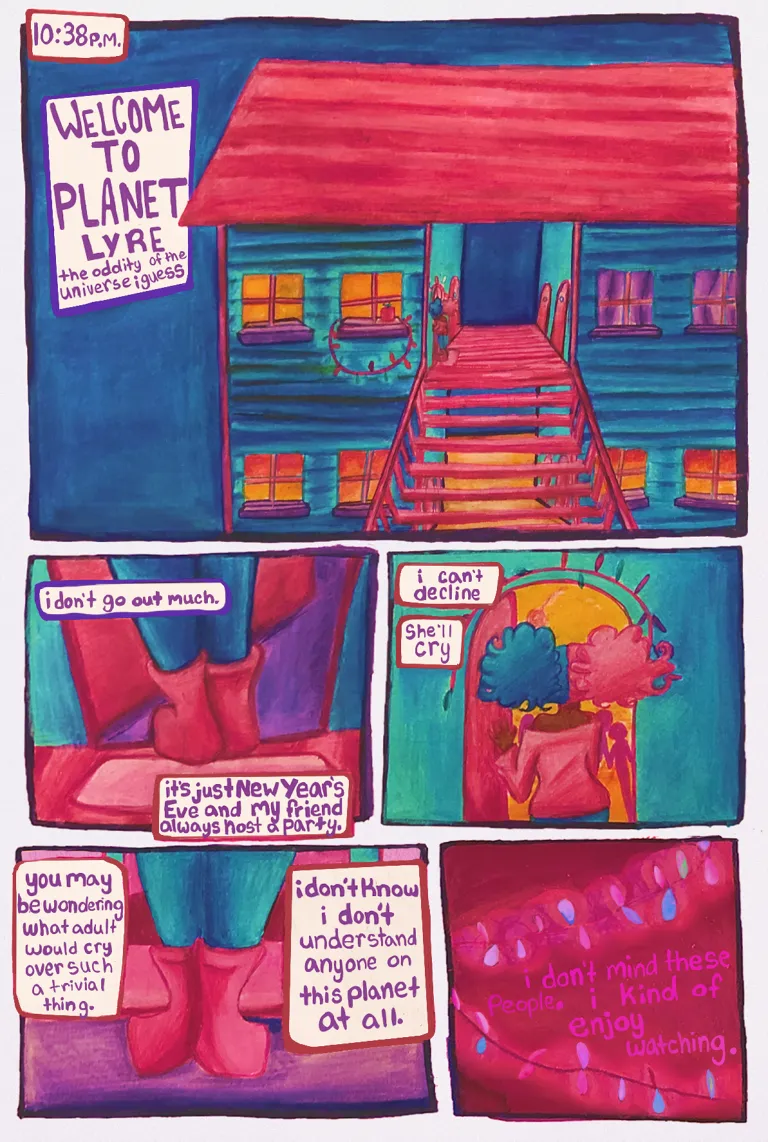 10:38P.M.
WELCOME
TO
PLANET
LYRE
the oddity of the
universe iguess
i don't go out much.
it's just New Year's
Eve and my friend
always host a party.
i can't
decline
She'll
cry
you may
be wondering
what adult
would cry
over such
a trivial
thing.
i don't know
i don't
understand
anyone on
this planet
at all.
i don't mind these
People. i kind of
enjoy
watching.